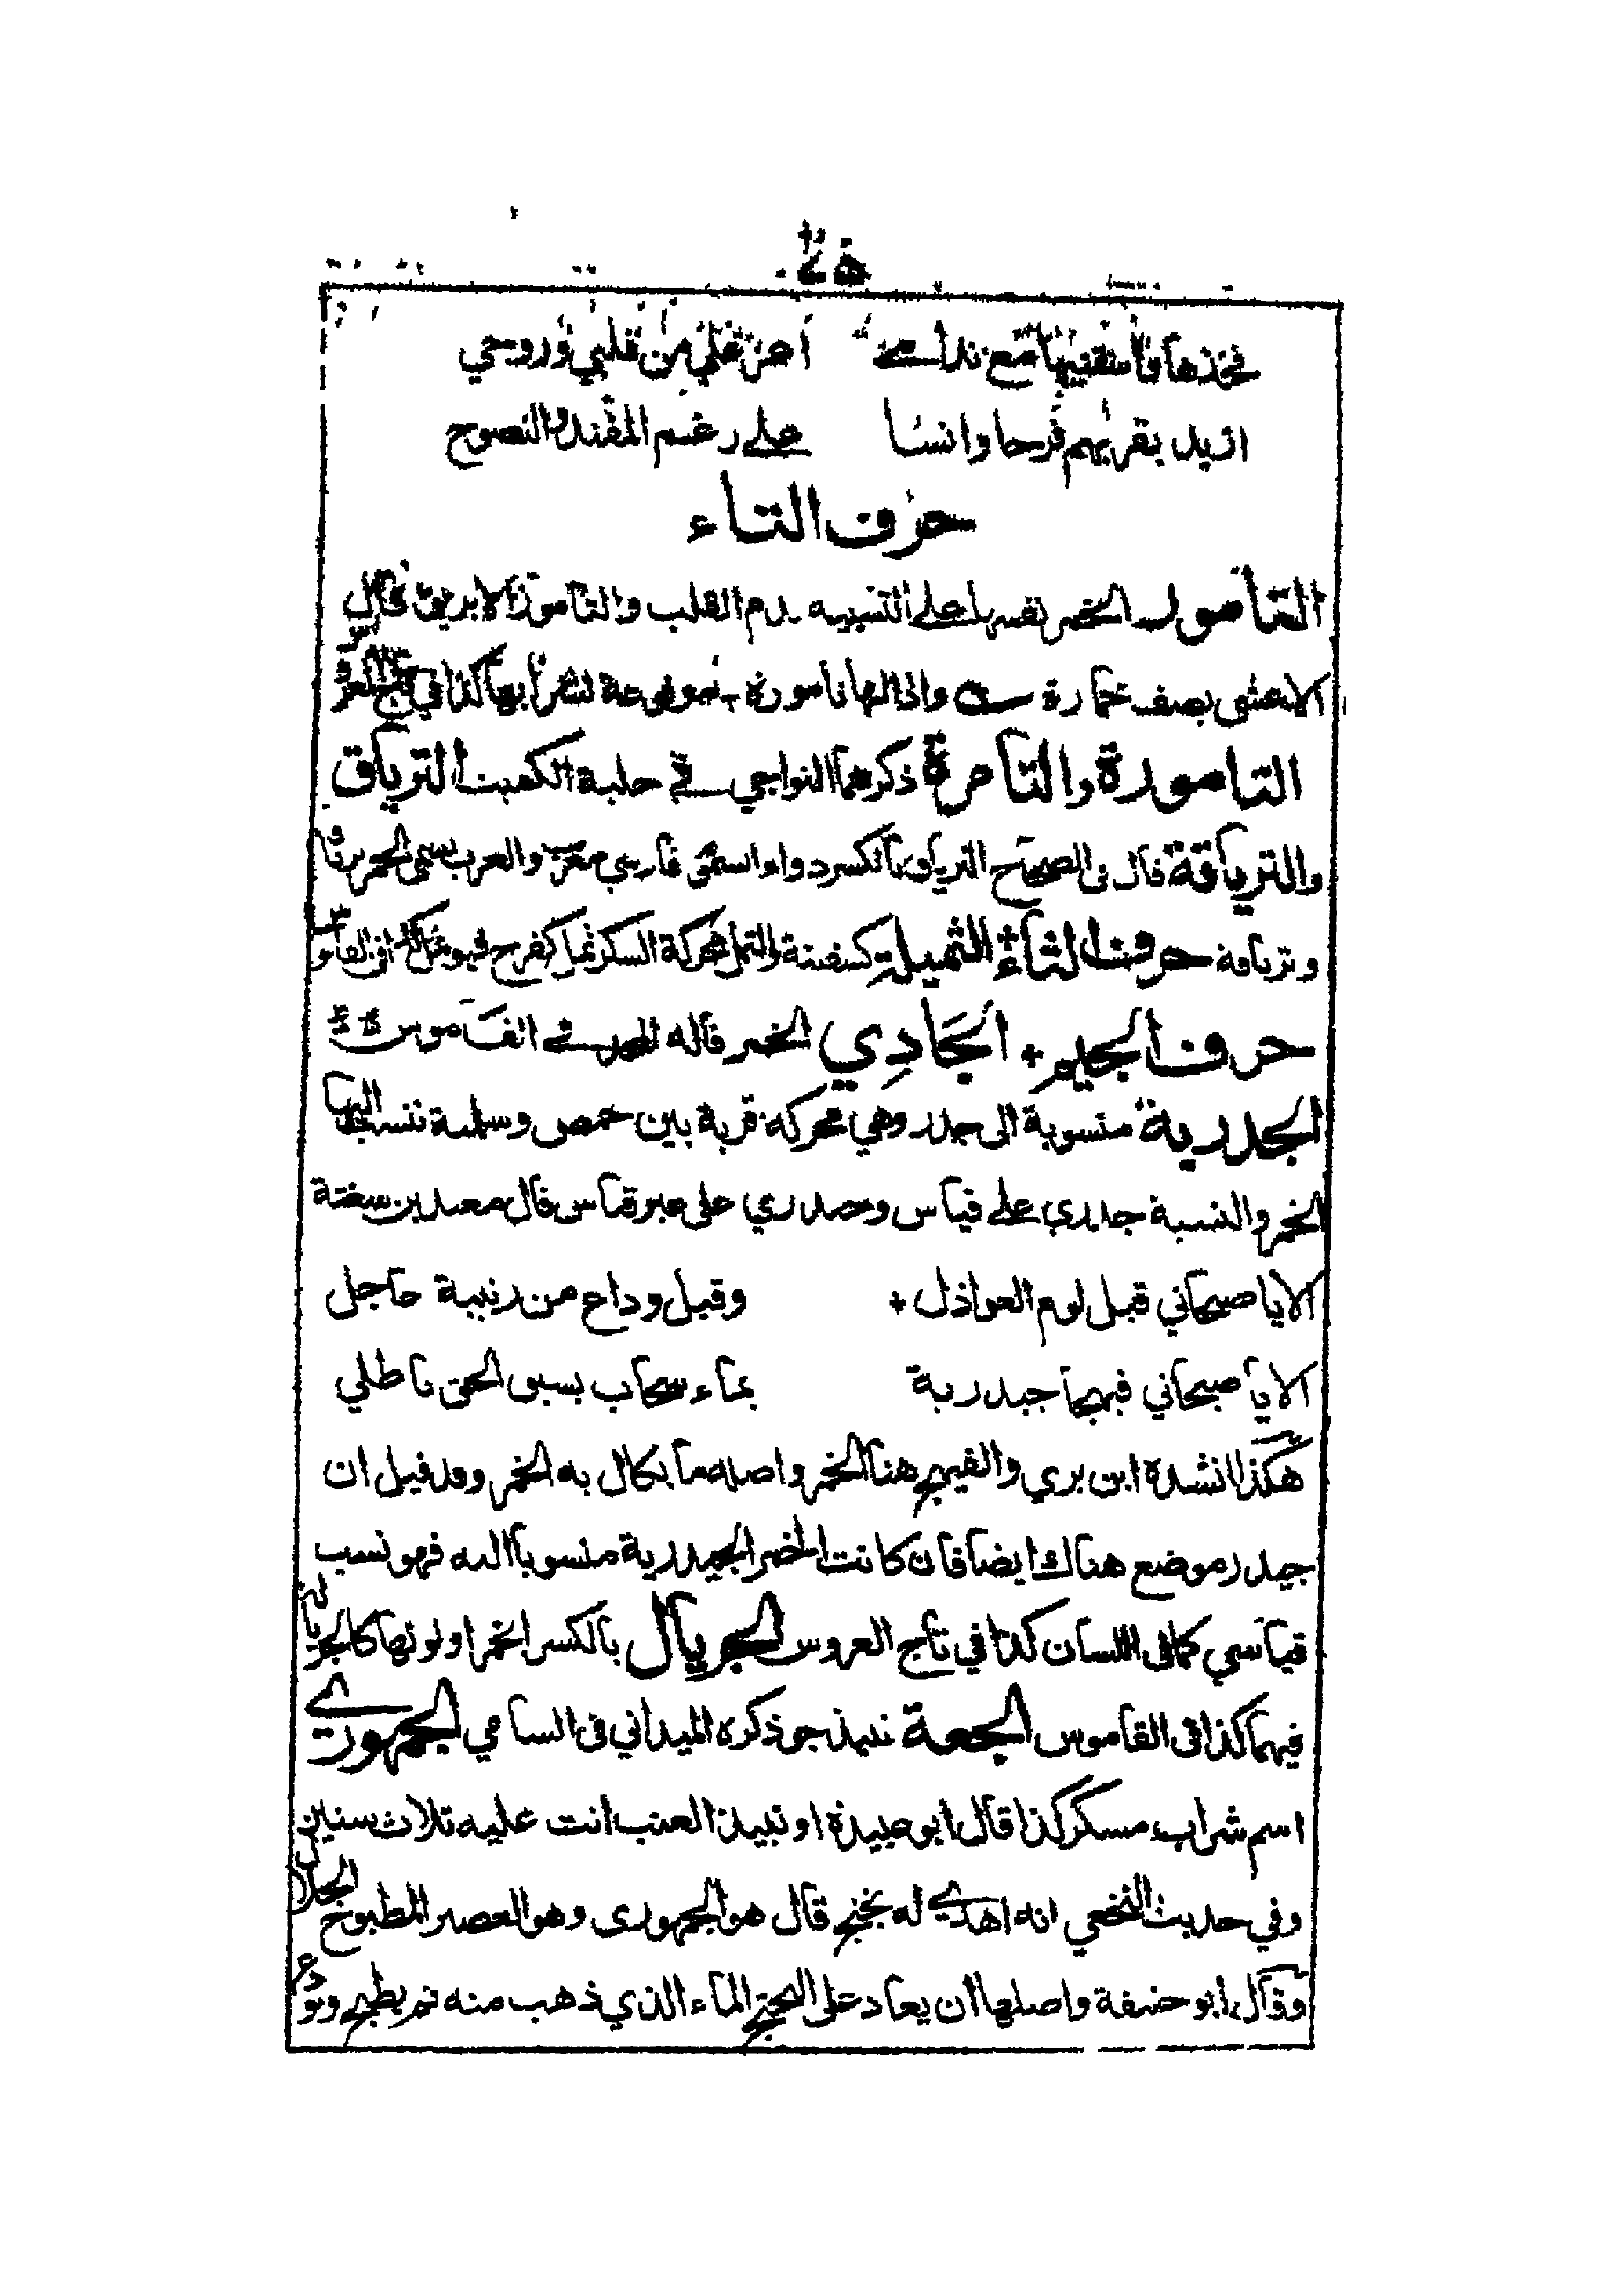 فخذها فاسقنيها مع ندامى اعز علي من قلبي وروحي
ازيد بقربهم فرحا وانسا على رغم المفند والنصوح
حرف التاء
التامور الخمر نفسها على التشبيه بدم القلب والتامور الابريق قال
الاعشى يصف خمارة واذا لها تامورة موضوعة لشرابها كذا في تاج العروس
التامورة والتامرة ذكرهما النواجي في حلبة الكميت الترياق
والترياقة قال في الصحاح الترياق بالكسر دواء السموم فارسي معرب والعرب تسمي الخمر ترياقا
وترياقة حرف الثاء الثميلة كسفينة والثمل محركة السكر ثمل كفرح فهو ثمل كذا في القاموس
حرف الجيم الجَادِي الخمر قاله المجد في القاموس
الجدرية منسوبة الى جدر وهي محركة قرية بين حمص وسلمية تنسب اليها
الخمر والنسبة جدري على قياس وجيدري على غير قياس قال معبد بن سعنة
الا يا اصبحاني قبل لوم العواذل وقبل وداع من زنيبة عاجل
الا يا اصبحاني فيهجا جيدرية بماء سحاب يسبق الحق باطلي
هكذا انشده ابن بري والفيهج هنا الخمر واصله ما يكال به الخمر وقد قيل ان
جيدر موضع هنالك ايضا فان كانت الخمر الجيدرية منسوبا اليه فهو نسب
قياسي كما في اللسان كذا في تاج العروس الجريال بالكسر الخمر او لونها كالجريالة
فيهما كذا في القاموس الجعة نبيذ جو ذكره الميداني في السامي الجمهوري
اسم شراب مسكر كذا قال ابو عبيدة او نبيذ العنب اتت عليه ثلاث سنين
وفي حديث النخعي انه اهدي له بختج قال هو الجمهوري وهو العصير المطبوخ الحلال
وقال ابو حنيفة واصلها ان يعاد على البختج الماء الذي ذهب منه ثم يطبخ ويودع